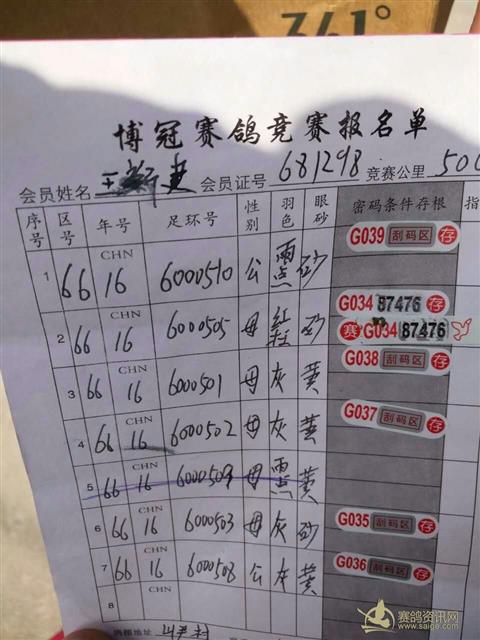 361°
博冠赛鸽竞赛报名单
会员姓名 王 会员证号 681298 竞赛公里 500
序号 区号 年号 足环号 性别 羽色 眼砂 密码条件存根 指
1 66 CHN 16 6000510 公 雨点 砂 G039 刮码区 存
2 66 CHN 16 6000505 母 红 砂 G034 87476 存
赛 G034 87476
3 66 CHN 16 6000501 母 灰 黄 G038 刮码区 存
4 66 CHN 16 6000502 母 灰 黄 G037 刮码区 存
5 66 CHN 16 6000509 母 雨点 黄
6 66 CHN 16 6000503 母 灰 砂 G035 刮码区 存
7 66 CHN 16 6000508 公 灰 黄 G036 刮码区 存
8 CHN
鸿棚地址
赛鸽资讯网
www.saige.com